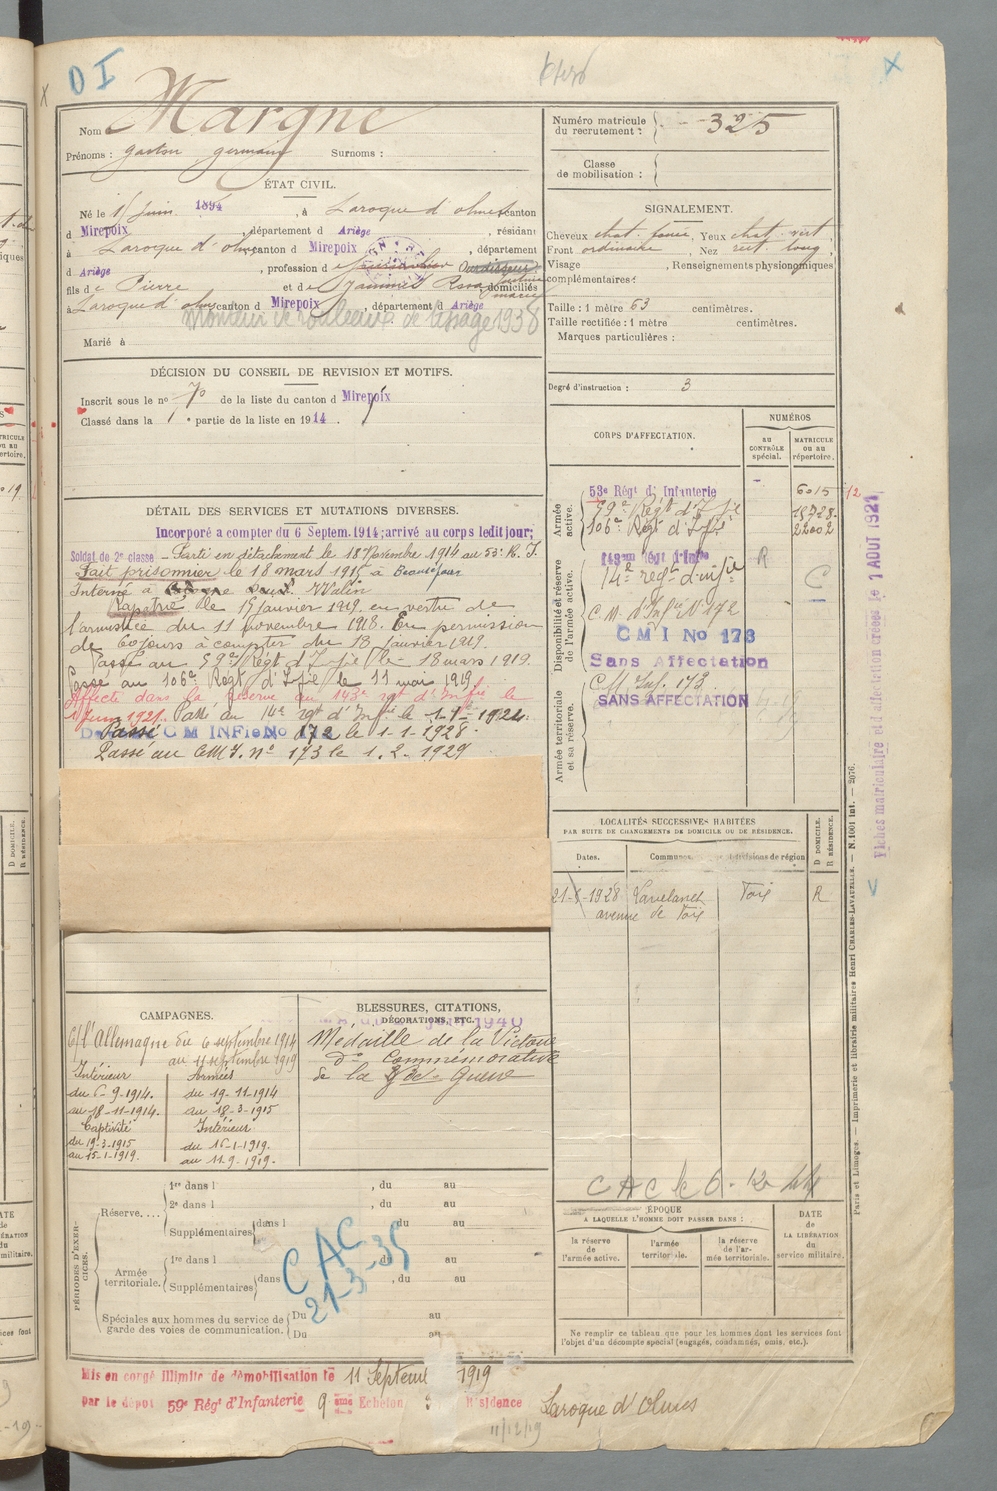 D I
Nom Margne
Prénoms : gaston germain Surnoms :
ÉTAT CIVIL.
Né le 15 Juin 1894, à Laroque d'olmes canton
d Mirepoix, département d Ariège, résidant
à Laroque d'olmes canton d Mirepoix, département
d Ariège, profession d Ourdisseur
fils de Pierre et de Jammes Rosa Marie domiciliés
à Laroque d'olmes canton d Mirepoix, département d Ariège
Monteur de rouleaux de tissage 1938
Marié à
DÉCISION DU CONSEIL DE REVISION ET MOTIFS.
Inscrit sous le no 70 de la liste du canton d Mirepoix
Classé dans la 1e partie de la liste en 1914.
DÉTAIL DES SERVICES ET MUTATIONS DIVERSES.
Incorporé a compter du 6 Septem. 1914; arrivé au corps ledit jour;
Soldat de 2e classe – Parti en détachement le 18 Novembre 1914 au 53e R. I.
Fait prisonnier le 18 mars 1915 à Beauséjour
Interné à Wahn
Rapatrié le 15 janvier 1919 en vertu de
l'armistice du 11 novembre 1918. En permission
de 60 jours à compter du 18 janvier 1919.
Passé au 59e Régt d'Infie le 18 mars 1919.
Passé au 106e Régt d'Infie le 11 mai 1919
Affecté dans la réserve au 143e rgt d'Infie le
1 Juin 1921. Passé au 14e rgt d'Infie le 1-1-1924.
Passé C M INFie No 172 le 1-1-1928.
Passé au C.M.I. no 173 le 1.2.1929
CAMPAGNES.
C/ l'Allemagne du 6 septembre 1914
au 11 septembre 1919
Intérieur Armées
du 6-9-1914. du 19-11-1914
au 18-11-1914. au 18-3-1915
Captivité Intérieur
du 19-3-1915 du 16-1-1919.
au 15-1-1919. au 11-9-1919.
BLESSURES, CITATIONS,
DÉCORATIONS, ETC.
1940
Médaille de la Victoire
do Commémorative
de la Gde Guerre
PÉRIODES D'EXERCICES.
Réserve....
1re dans l , du au
2e dans l , du au
Supplémentaires dans l du au
Armée territoriale.
1re dans l , du au
Supplémentaires dans , du au
Spéciales aux hommes du service de garde des voies de communication.
Du au
Du au
CAC
21-3-35
Mis en congé illimité de démobilisation le 11 Septembre 1919
par le dépôt 59e Régt d'Infanterie 9 ème Echelon : Résidence Laroque d'Olmes
11/12/19
Numéro matricule du recrutement : 325
Classe de mobilisation :
SIGNALEMENT.
Cheveux chat. foncé, Yeux chat. vert,
Front ordinaire, Nez rect. long,
Visage , Renseignements physionomiques
complémentaires :
Taille : 1 mètre 63 centimètres.
Taille rectifiée : 1 mètre centimètres.
Marques particulières :
Degré d'instruction : 3
CORPS D'AFFECTATION.
NUMÉROS
AU CONTRÔLE spécial.
MATRICULE OU AU répertoire.
Armée active.
53e Régt d'Infanterie 6015
59e Régt d'Infie 18728
106e Régt d'Infie 22002
Disponibilité et réserve de l'armée active.
143ème Régt d'Infie R
14e régt d'infie
C.M. d'Infie No 172
C M I No 173
Sans Affectation
Armée territoriale et sa réserve.
C.M. Inf. 173
SANS AFFECTATION
Fiches matriculaire et d'affectation créées le 1 AOUT 1921
LOCALITÉS SUCCESSIVES HABITÉES
PAR SUITE DE CHANGEMENTS DE DOMICILE OU DE RÉSIDENCE.
Dates. Communes. Subdivisions de région
D DOMICILE. R RÉSIDENCE.
1928 Lavelanet Foix R
avenue de Foix
CAC le 6.12.44
ÉPOQUE
A LAQUELLE L'HOMME DOIT PASSER DANS :
la réserve de l'armée active.
l'armée territoriale.
la réserve de l'armée territoriale.
DATE de LA LIBÉRATION du service militaire.
Ne remplir ce tableau que pour les hommes dont les services font
l'objet d'un décompte spécial (engagés, condamnés, omis, etc.).
Paris et Limoges. — Imprimerie et librairie militaires Henri CHARLES-LAVAUZELLE. — N. 1001 int. — 2976.